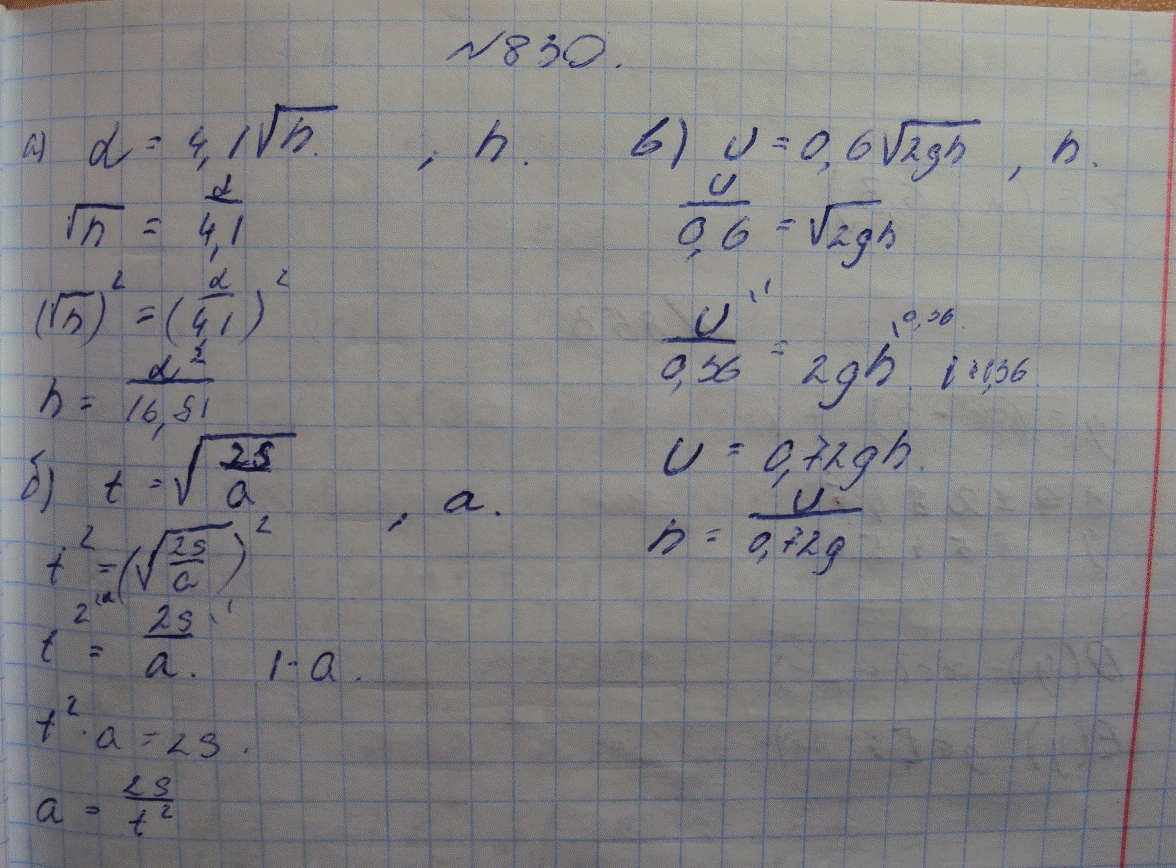 №830.
а) d = 4,1√h , h.
√h = d/4,1
(√h)² = (d/4,1)²
h = d²/16,81
б) t = √(2s/a) , a.
t² = (√(2s/a))²
t² = 2s/a. | · a.
t² · a = 2s.
a = 2s/t²
в) υ = 0,6√2gh , h.
υ/0,6 = √2gh
υ/0,36 = 2gh
υ = 0,72gh.
h = υ/0,72g